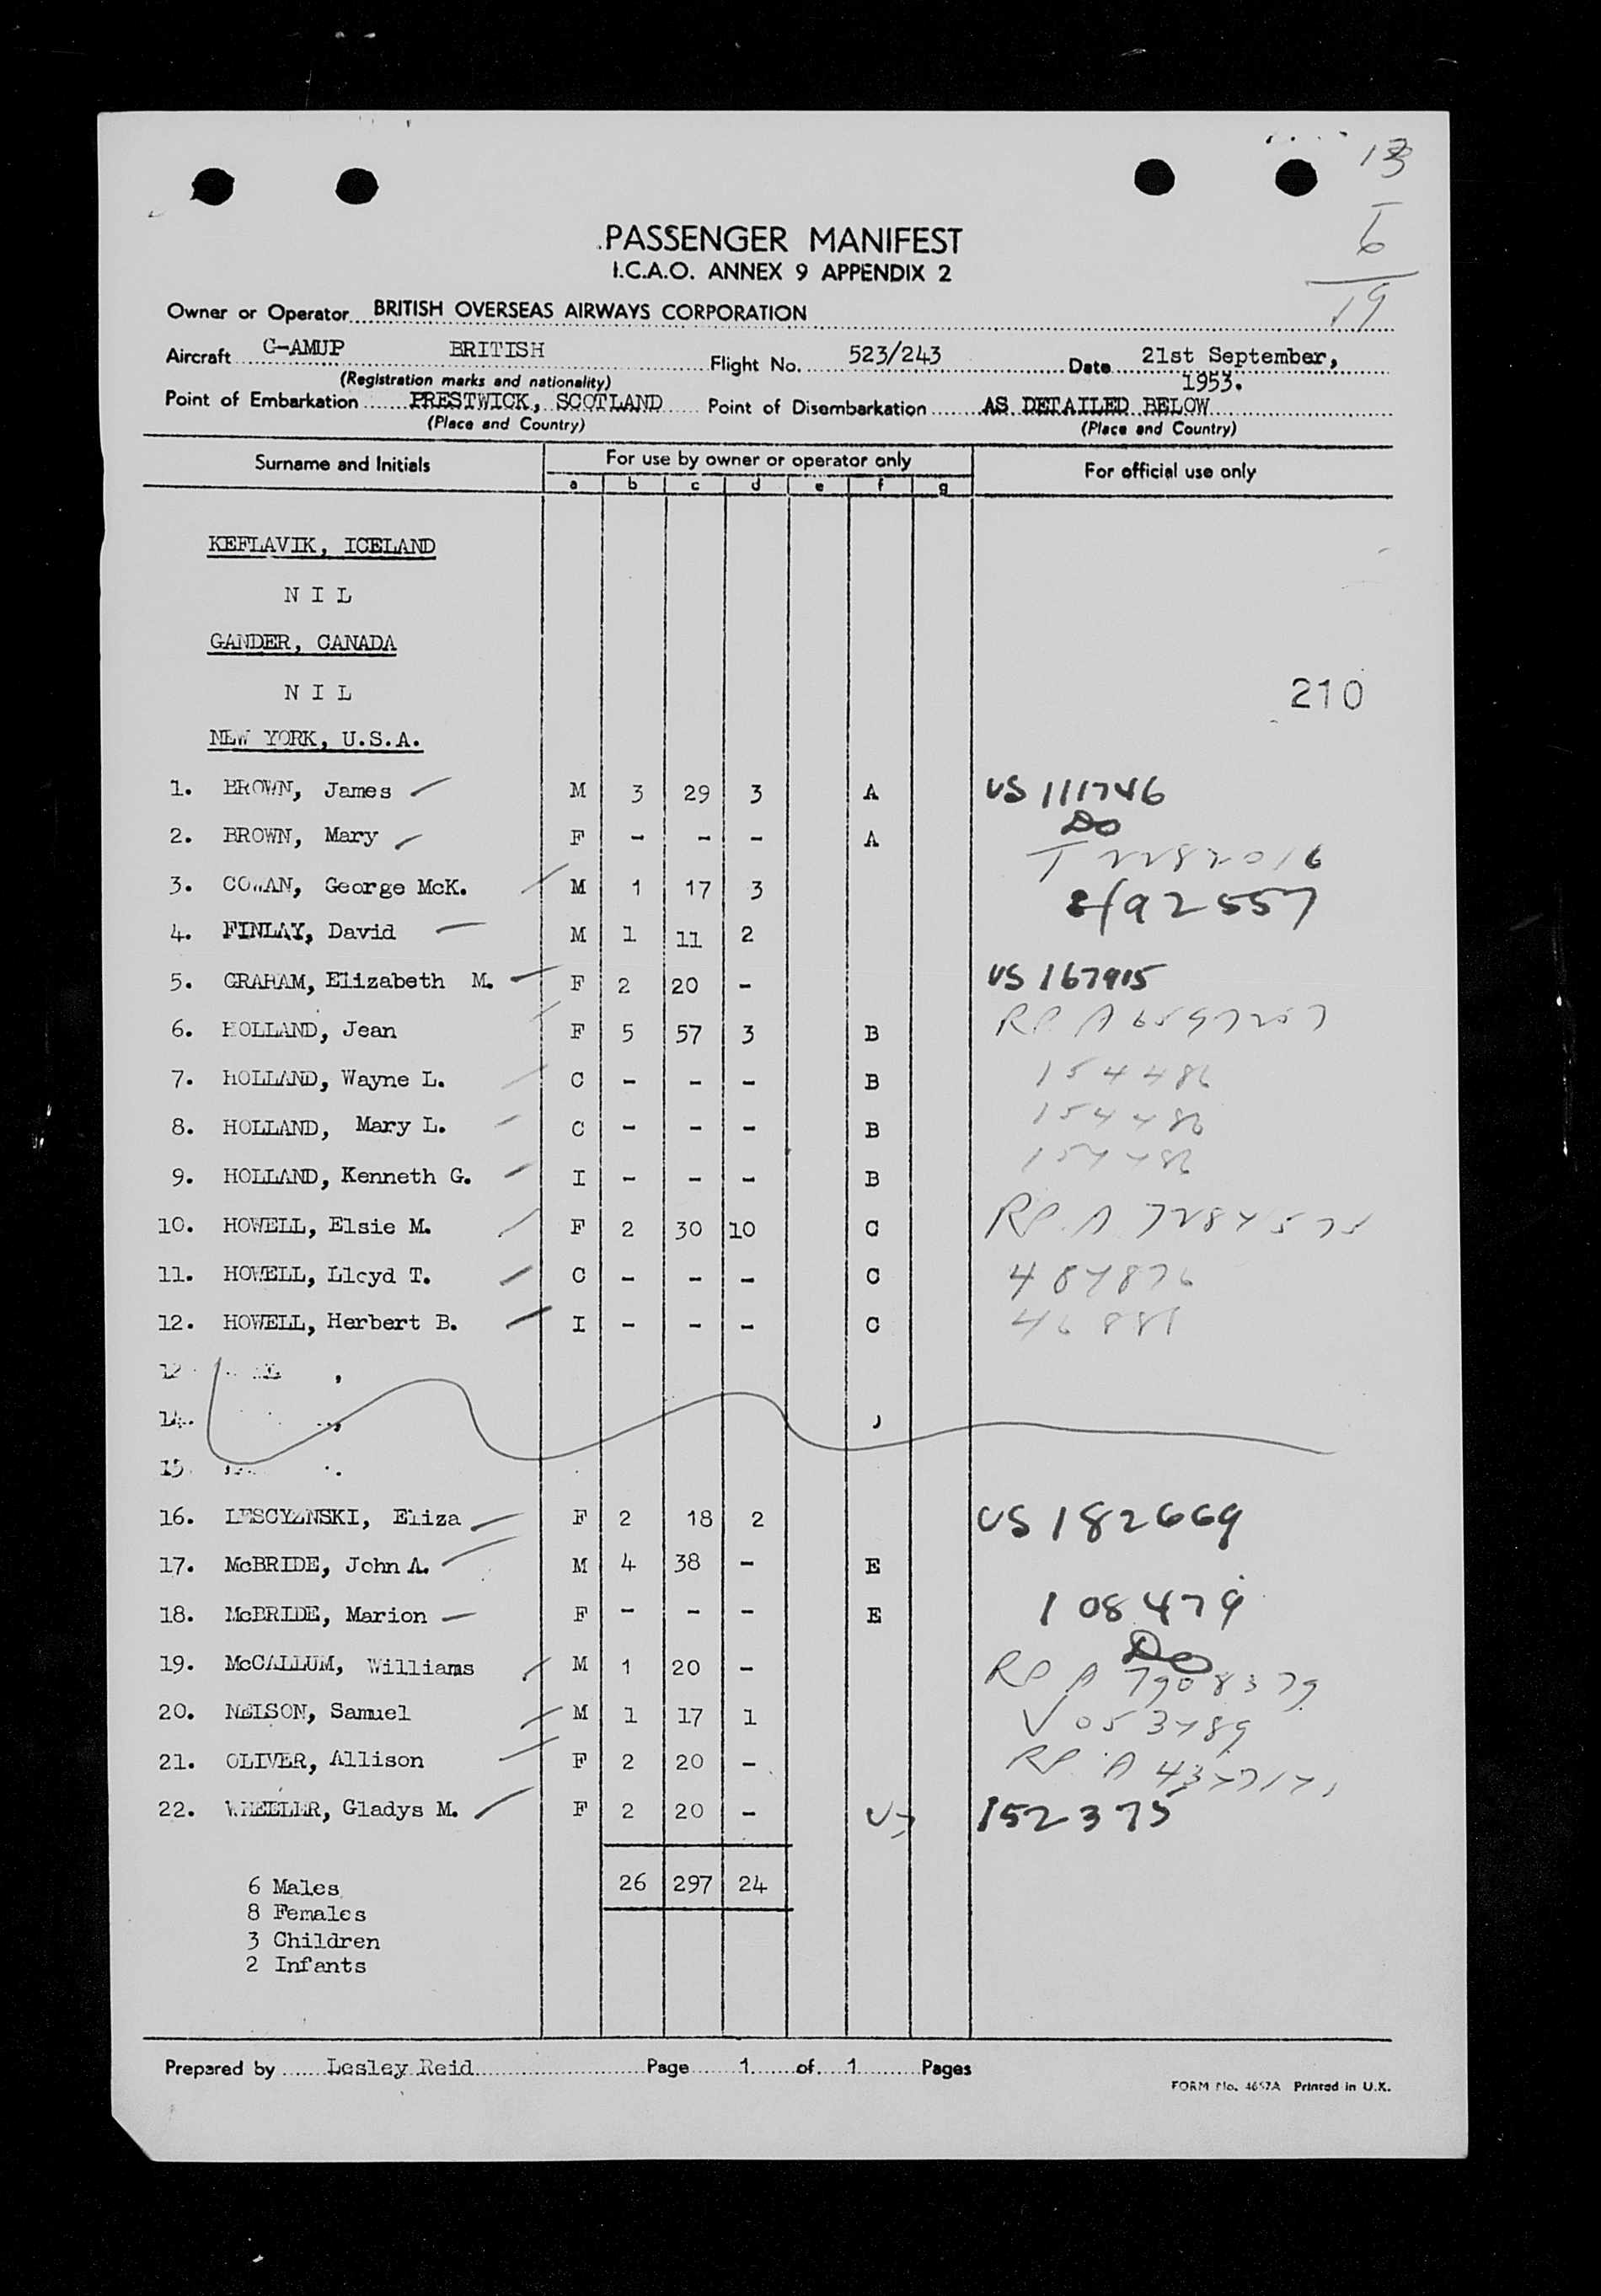 13
6
19
PASSENGER MANIFEST
I.C.A.O. ANNEX 9 APPENDIX 2
Owner or Operator BRITISH OVERSEAS AIRWAYS CORPORATION
Aircraft G-AMUP BRITISH Flight No. 523/243 Date 21st September, 1953.
(Registration marks and nationality)
Point of Embarkation PRESTWICK, SCOTLAND Point of Disembarkation AS DETAILED BELOW
(Place and Country) (Place and Country)
Surname and Initials For use by owner or operator only For official use only
a b c d e f g
KEFLAVIK, ICELAND
N I L
GANDER, CANADA
N I L
210
NEW YORK, U.S.A.
1. BROWN, James M 3 29 3 A US 111746
2. BROWN, Mary F - - - A Do
3. COWAN, George McK. M 1 17 3
4. FINLAY, David M 1 11 2
5. GRAHAM, Elizabeth M. F 2 20 - US 167915
6. HOLLAND, Jean F 5 57 3 B RP A
7. HOLLAND, Wayne L. C - - - B 154486
8. HOLLAND, Mary L. C - - - B 154486
9. HOLLAND, Kenneth G. I - - - B 154486
10. HOWELL, Elsie M. F 2 30 10 C RP A
11. HOWELL, Lloyd T. C - - - C
12. HOWELL, Herbert B. I - - - C
14.
15.
16. LESCYZNSKI, Eliza F 2 18 2 US 182669
17. McBRIDE, John A. M 4 38 - E
18. McBRIDE, Marion F - - - E 108479
Do
19. McCALLUM, Williams M 1 20 - RP A 7908379
20. NELSON, Samuel M 1 17 1
21. OLIVER, Allison F 2 20 - RP A
22. WHEELER, Gladys M. F 2 20 - US 152375
26 297 24
6 Males
8 Females
3 Children
2 Infants
Prepared by Lesley Reid Page 1 of 1 Pages
FORM No. 4657A Printed in U.K.